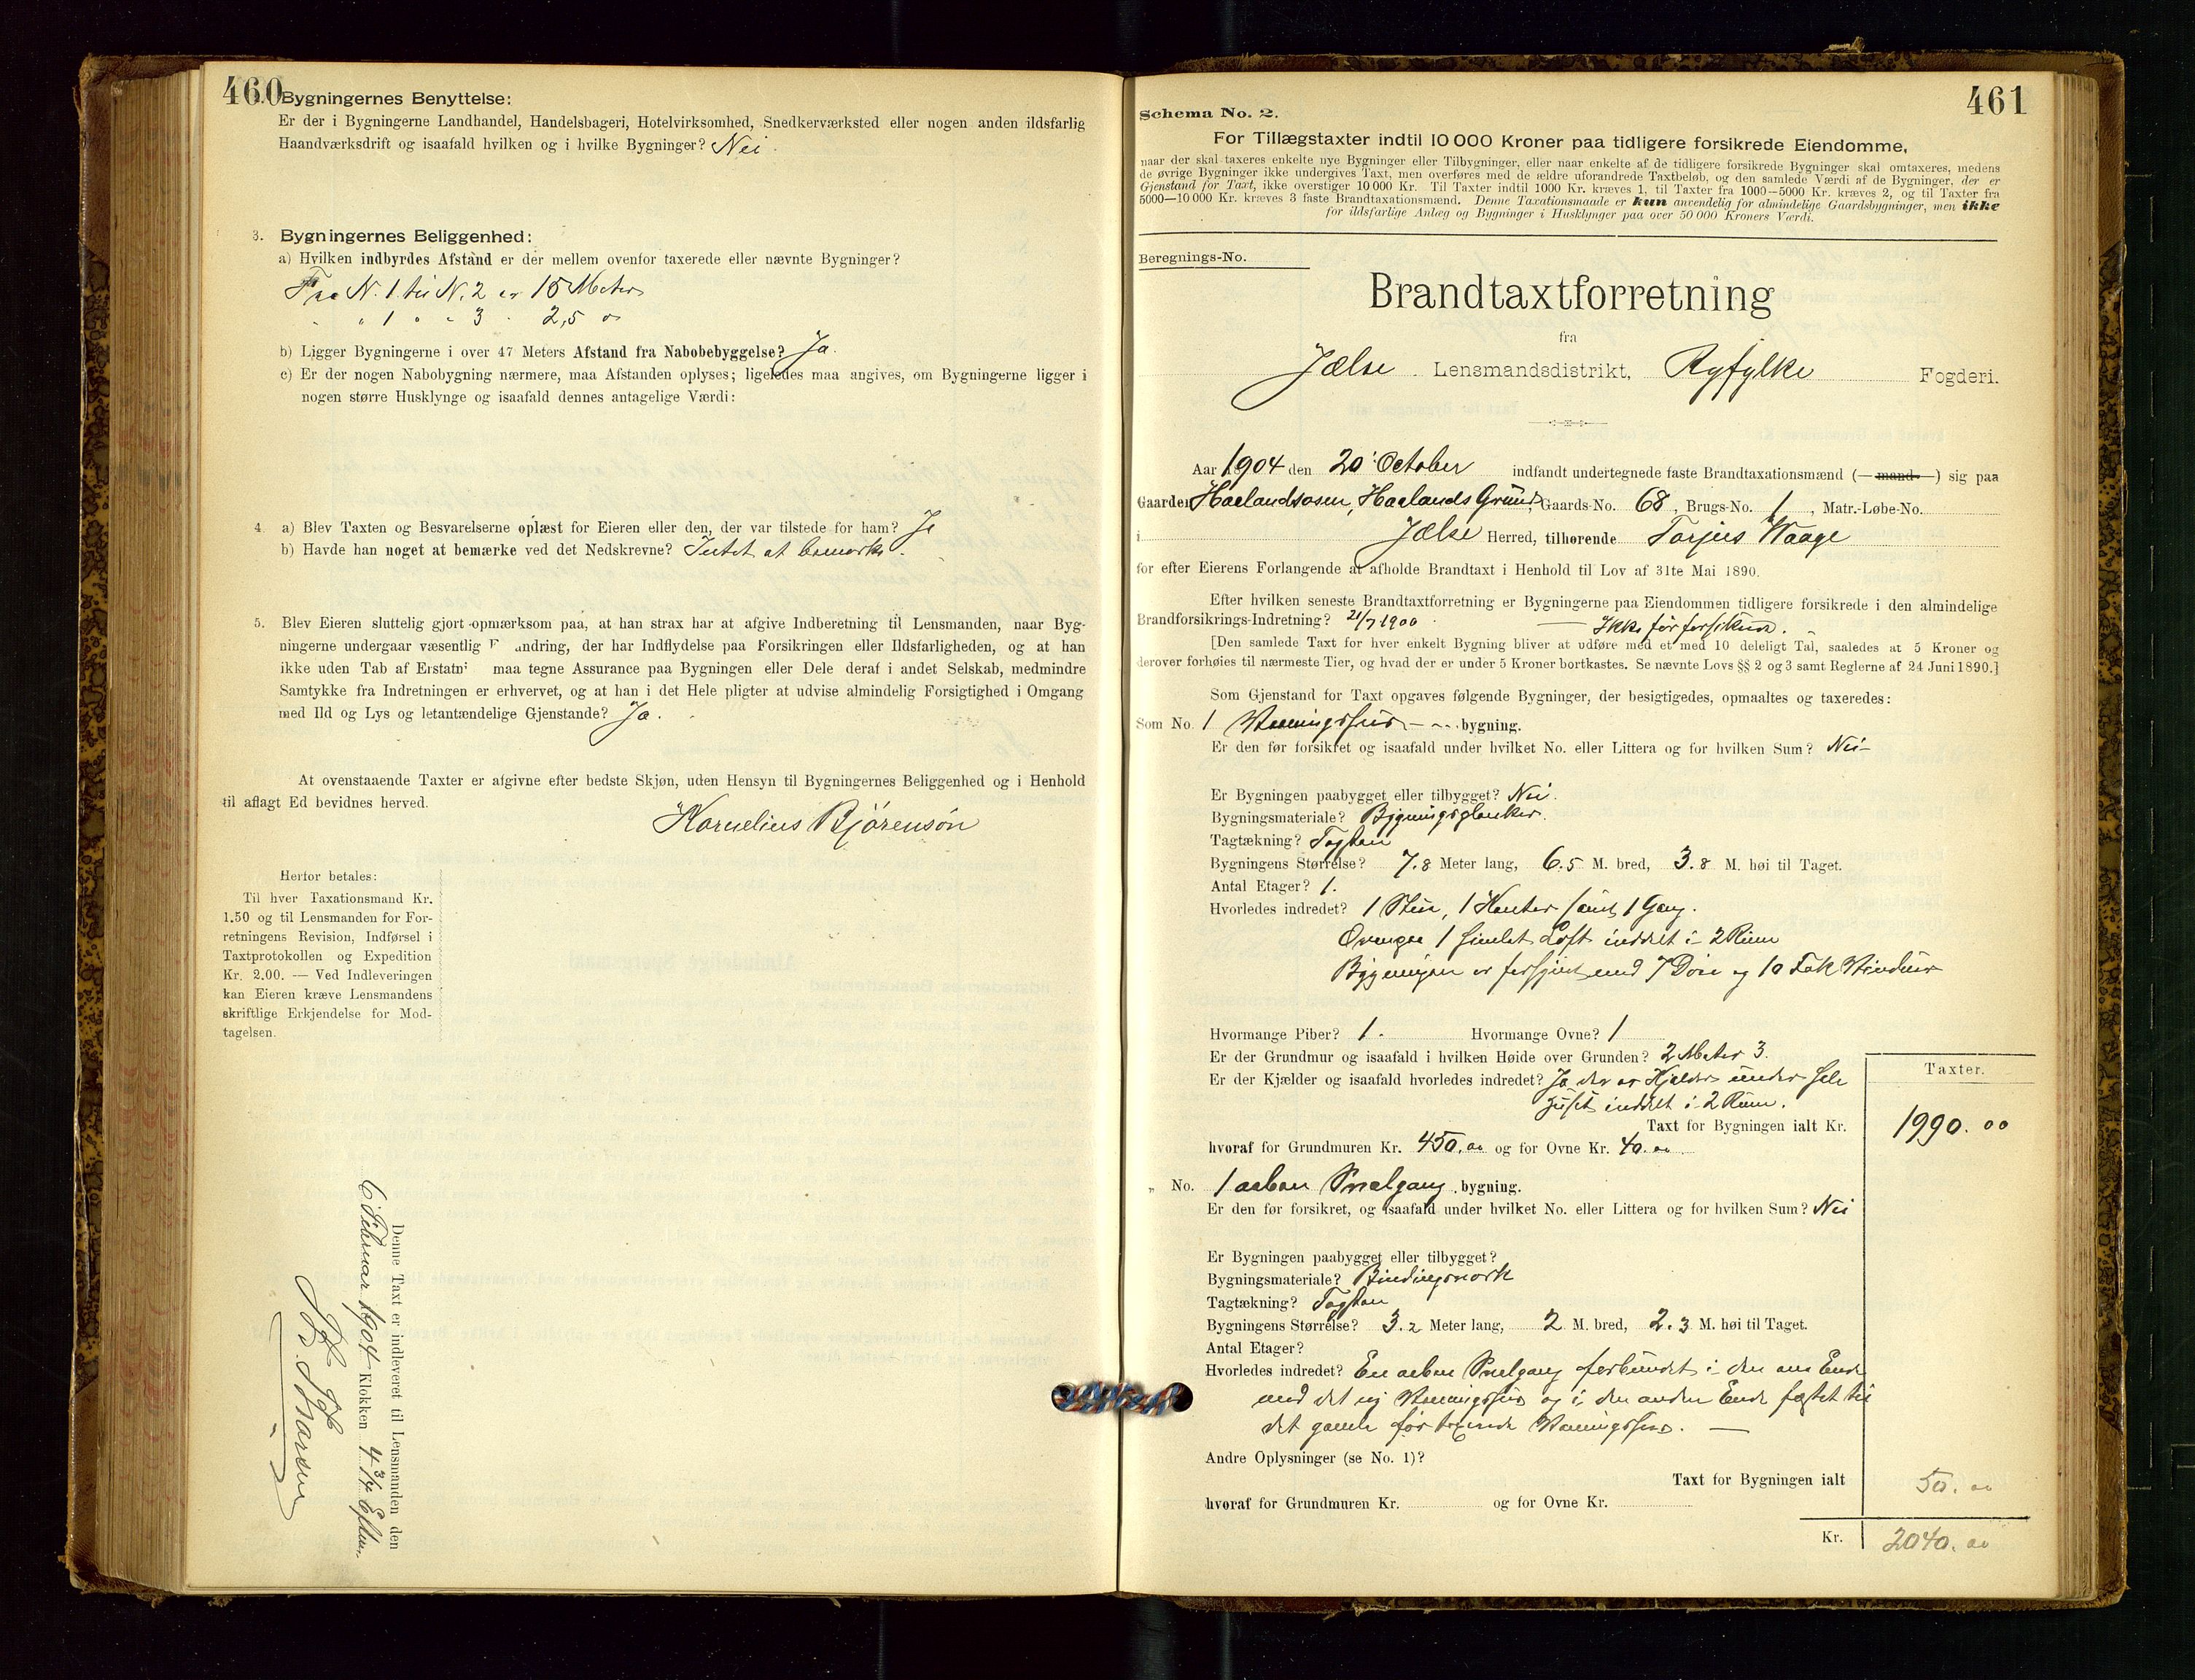 460
Bygningernes Benyttelse:
Er der i Bygningerne Landhandel, Handelsbageri, Hotelvirksomhed, Snedkerværksted eller nogen anden ildsfarlig
Haandværksdrift og isaafald hvilken og i hvilke Bygninger? Nei.
3. Bygningernes Beliggenhed:
a) Hvilken indbyrdes Afstand er der mellem ovenfor taxerede eller nævnte Bygninger?
Fra N. 1 til N. 2 er 15 Meter
" " 1 " " 3 " 2,5 "
b) Ligger Bygningerne i over 47 Meters Afstand fra Nabobebyggelse? Ja.
c) Er der nogen Nabobygning nærmere, maa Afstanden oplyses; ligeledes maa angives, om Bygningerne ligger i
nogen større Husklynge og isaafald dennes antagelige Værdi:
4. a) Blev Taxten og Besvarelserne oplæst for Eieren eller den, der var tilstede for ham? Ja
b) Havde han noget at bemærke ved det Nedskrevne? Intet at bemærke.
5. Blev Eieren sluttelig gjort opmærksom paa, at han strax har at afgive Indberetning til Lensmanden, naar Byg-
ningerne undergaar væsentlig F andring, der har Indflydelse paa Forsikringen eller Ildsfarligheden, og at han
ikke uden Tab af Erstatn maa tegne Assurance paa Bygningen eller Dele deraf i andet Selskab, medmindre
Samtykke fra Indretningen er erhvervet, og at han i det Hele pligter at udvise almindelig Forsigtighed i Omgang
med Ild og Lys og letantændelige Gjenstande? Ja.
At ovenstaaende Taxter er afgivne efter bedste Skjøn, uden Hensyn til Bygningernes Beliggenhed og i Henhold
til aflagt Ed bevidnes herved.
Kornelius Bjørensøn
Herfor betales:
Til hver Taxationsmand Kr.
1.50 og til Lensmanden for For-
retningens Revision, Indførsel i
Taxtprotokollen og Expedition
Kr. 2.00. — Ved Indleveringen
kan Eieren kræve Lensmandens
skriftlige Erkjendelse for Mod-
tagelsen.
Denne Taxt er indleveret til Lensmanden den
6 Februar 1904 Klokken 4 3/4 Efterm.
461
Schema No. 2.
For Tillægstaxter indtil 10 000 Kroner paa tidligere forsikrede Eiendomme,
naar der skal taxeres enkelte nye Bygninger eller Tilbygninger, eller naar enkelte af de tidligere forsikrede Bygninger skal omtaxeres, medens
de øvrige Bygninger ikke undergives Taxt, men overføres med de ældre uforandrede Taxtbeløb, og den samlede Værdi af de Bygninger, der er
Gjenstand for Taxt, ikke overstiger 10 000 Kr. Til Taxter indtil 1000 Kr. kræves 1, til Taxter fra 1000—5000 Kr. kræves 2, og til Taxter fra
5000—10 000 Kr. kræves 3 faste Brandtaxationsmænd. Denne Taxationsmaade er kun anvendelig for almindelige Gaardsbygninger, men ikke
for ildsfarlige Anlæg og Bygninger i Husklynger paa over 50 000 Kroners Værdi.
Beregnings-No.
Brandtaxtforretning
fra
Jælse Lensmandsdistrikt, Ryfylke Fogderi.
Aar 1904 den 20' October indfandt undertegnede faste Brandtaxationsmænd (—mand—) sig paa
Gaarden Haelandsosen, Haelands Grund, Gaards-No. 68, Brugs-No. 1, Matr.-Løbe-No.
i Jælse Herred, tilhørende Torjus Waage
for efter Eierens Forlangende at afholde Brandtaxt i Henhold til Lov af 31te Mai 1890.
Efter hvilken seneste Brandtaxtforretning er Bygningerne paa Eiendommen tidligere forsikrede i den almindelige
Brandforsikrings-Indretning? 21/7 1900 Ikke før forsikret.
[Den samlede Taxt for hver enkelt Bygning bliver at udføre med et med 10 deleligt Tal, saaledes at 5 Kroner og
derover forhøies til nærmeste Tier, og hvad der er under 5 Kroner bortkastes. Se nævnte Lovs §§ 2 og 3 samt Reglerne af 24 Juni 1890.]
Som Gjenstand for Taxt opgaves følgende Bygninger, der besigtigedes, opmaaltes og taxeredes:
Som No. 1 Vaaningshus bygning.
Er den før forsikret og isaafald under hvilket No. eller Littera og for hvilken Sum? Nei
Er Bygningen paabygget eller tilbygget? Nei.
Bygningsmateriale? Bygningsplanker.
Tagtækning? Tagsten
Bygningens Størrelse? 7.8 Meter lang, 6.5 M. bred, 3.8 M. høi til Taget.
Antal Etager? 1.
Hvorledes indredet? 1 Stue, 1 Kontor samt 1 Gang.
Ovenpaa 1 simlet Loft inddelt i 2 Rum
Bygningen er forsynet med 7 Døre og 10 Fak Vinduer
Hvormange Piber? 1. Hvormange Ovne? 1
Er der Grundmur og isaafald i hvilken Høide over Grunden? 2 Meter 3.
Er der Kjælder og isaafald hvorledes indredet? Ja der er Kjælder under hele
huset inddelt i 2 Rum.
Taxter.
Taxt for Bygningen ialt Kr. 1990.00
hvoraf for Grundmuren Kr. 450.00 og for Ovne Kr. 40.00
" No. 1 aaben Svalgang bygning.
Er den før forsikret, og isaafald under hvilket No. eller Littera og for hvilken Sum? Nei
Er Bygningen paabygget eller tilbygget?
Bygningsmateriale? Bindingsverk
Tagtækning? Tagsten
Bygningens Størrelse? 3.2 Meter lang, 2 M. bred, 2.3 M. høi til Taget.
Antal Etager?
Hvorledes indredet? En aaben Svalgang forbundet i den ene Ende
med det ny Vaaningshus og i den anden Ende fæstet til
det gamle før Vaaningshus.
Andre Oplysninger (se No. 1)?
Taxt for Bygningen ialt 50.00
hvoraf for Grundmuren Kr. og for Ovne Kr.
Kr. 2040.00